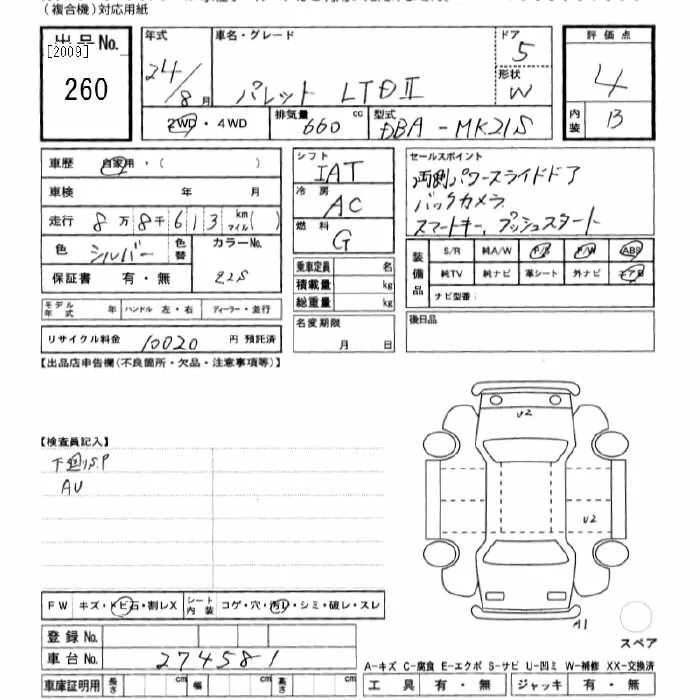 （複合機）対応用紙
出品No.
[2009]
260
年式
24/8月
車名・グレード
パレット LTDⅡ
ドア
5
形状
W
評価点
4
内装
B
2WD・4WD
排気量 660 cc
型式 DBA-MK21S
車歴 自家用・( )
車検 年 月
走行 8万8千613 km マイル( )
色 シルバー
色替
カラーNo.
Z2S
保証書 有・無
モデル年式 年
ハンドル 左・右
ディーラー・並行
リサイクル料金 10020 円 預託済
シフト
IAT
冷房
AC
燃料
G
乗車定員 名
積載量 kg
総重量 kg
名変期限
月 日
セールスポイント
両側パワースライドドア
バックカメラ
スマートキー、プッシュスタート
装備品
S/R 純A/W P/S P/W ABS
純TV 純ナビ 革シート 外ナビ エアB
ナビ型番：
後日品
【出品店申告欄(不良箇所・欠品・注意事項等)】
【検査員記入】
下回りS.P
AU
U2
U2
A1
スペア
FW キズ・トビ石・割レX
シート内装 コゲ・穴・汚レ・シミ・破レ・スレ
登録No.
車台No. 274581
車庫証明用 長さ cm 幅 cm 高さ cm
A-キズ C-腐食 E-エクボ S-サビ U-凹ミ W-補修 XX-交換済
工具 有・無 ジャッキ 有・無